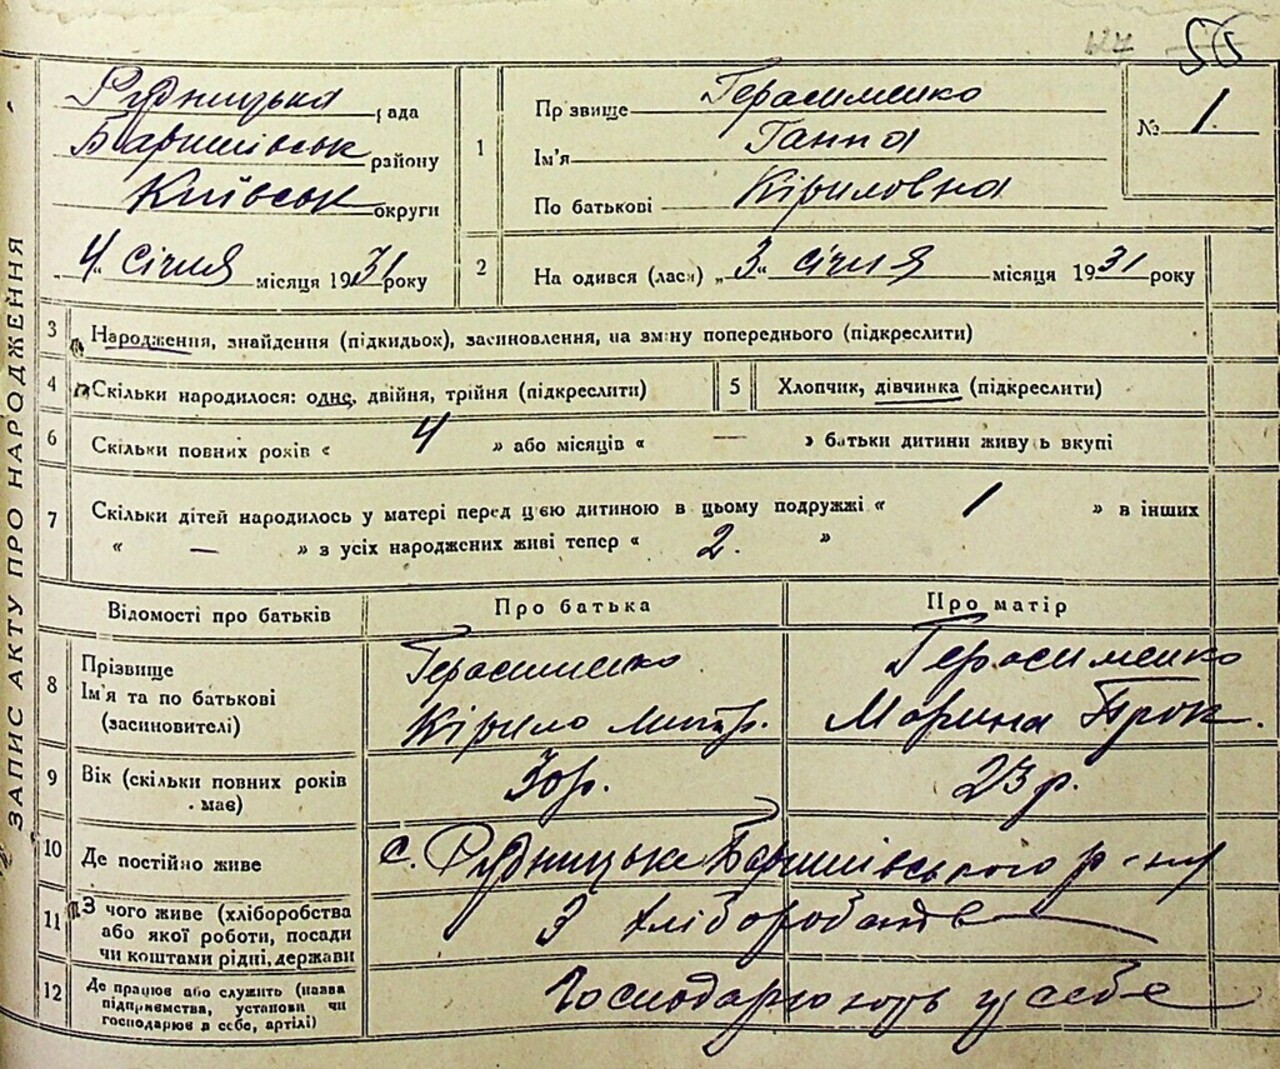 55
Рудницька рада
Баришівськ району
Київськ округи
„4“ січня місяця 1931 року
1
Прізвище Герасименко
Ім'я Ганна
По батькові Кіриловна
№ 1.
2
На одився (лася) „3“ січня місяця 1931 року
ЗАПИС АКТУ ПРО НАРОДЖЕННЯ
3 Народження, знайдення (підкидьок), засиновлення, на зміну попереднього (підкреслити)
4 Скільки народилося: одне, двійня, трійня (підкреслити)
5 Хлопчик, дівчинка (підкреслити)
6 Скільки повних років « 4 » або місяців « — » батьки дитини живуть вкупі
7 Скільки дітей народилось у матері перед цією дитиною в цьому подружжі « 1 » в інших
« — » з усіх народжених живі тепер « 2. »
Відомості про батьків Про батька Про матір
8 Прізвище Герасименко Герасименко
Ім'я та по батькові Кірило Митр. Марина Прок.
(засиновителі)
9 Вік (скільки повних років 30 р. 23 р.
має)
10 Де постійно живе с. Рудницьке Баришівського р-ну
11 З чого живе (хліборобства З хліборобств
або якої роботи, посади
чи коштами рідні, держави
12 Де працює або служить (назва Господарюють у себе
підприємства, установи чи
господарює в себе, артілі)